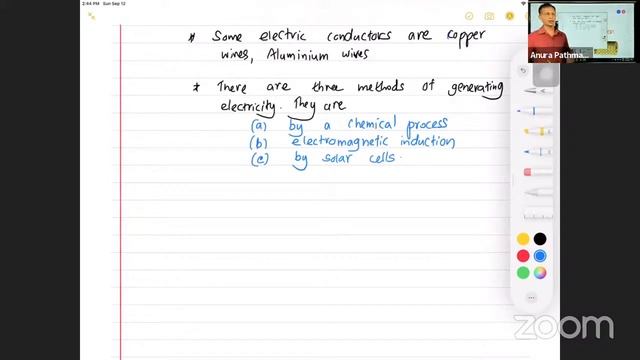 2:44 PM Sun Sep 12
* Some electric conductors are copper
wires, Aluminium wires
* There are three methods of generating
electricity. They are
(a) by a chemical process
(b) electromagnetic induction
(c) by solar cells
Anura Pathma...
zoom